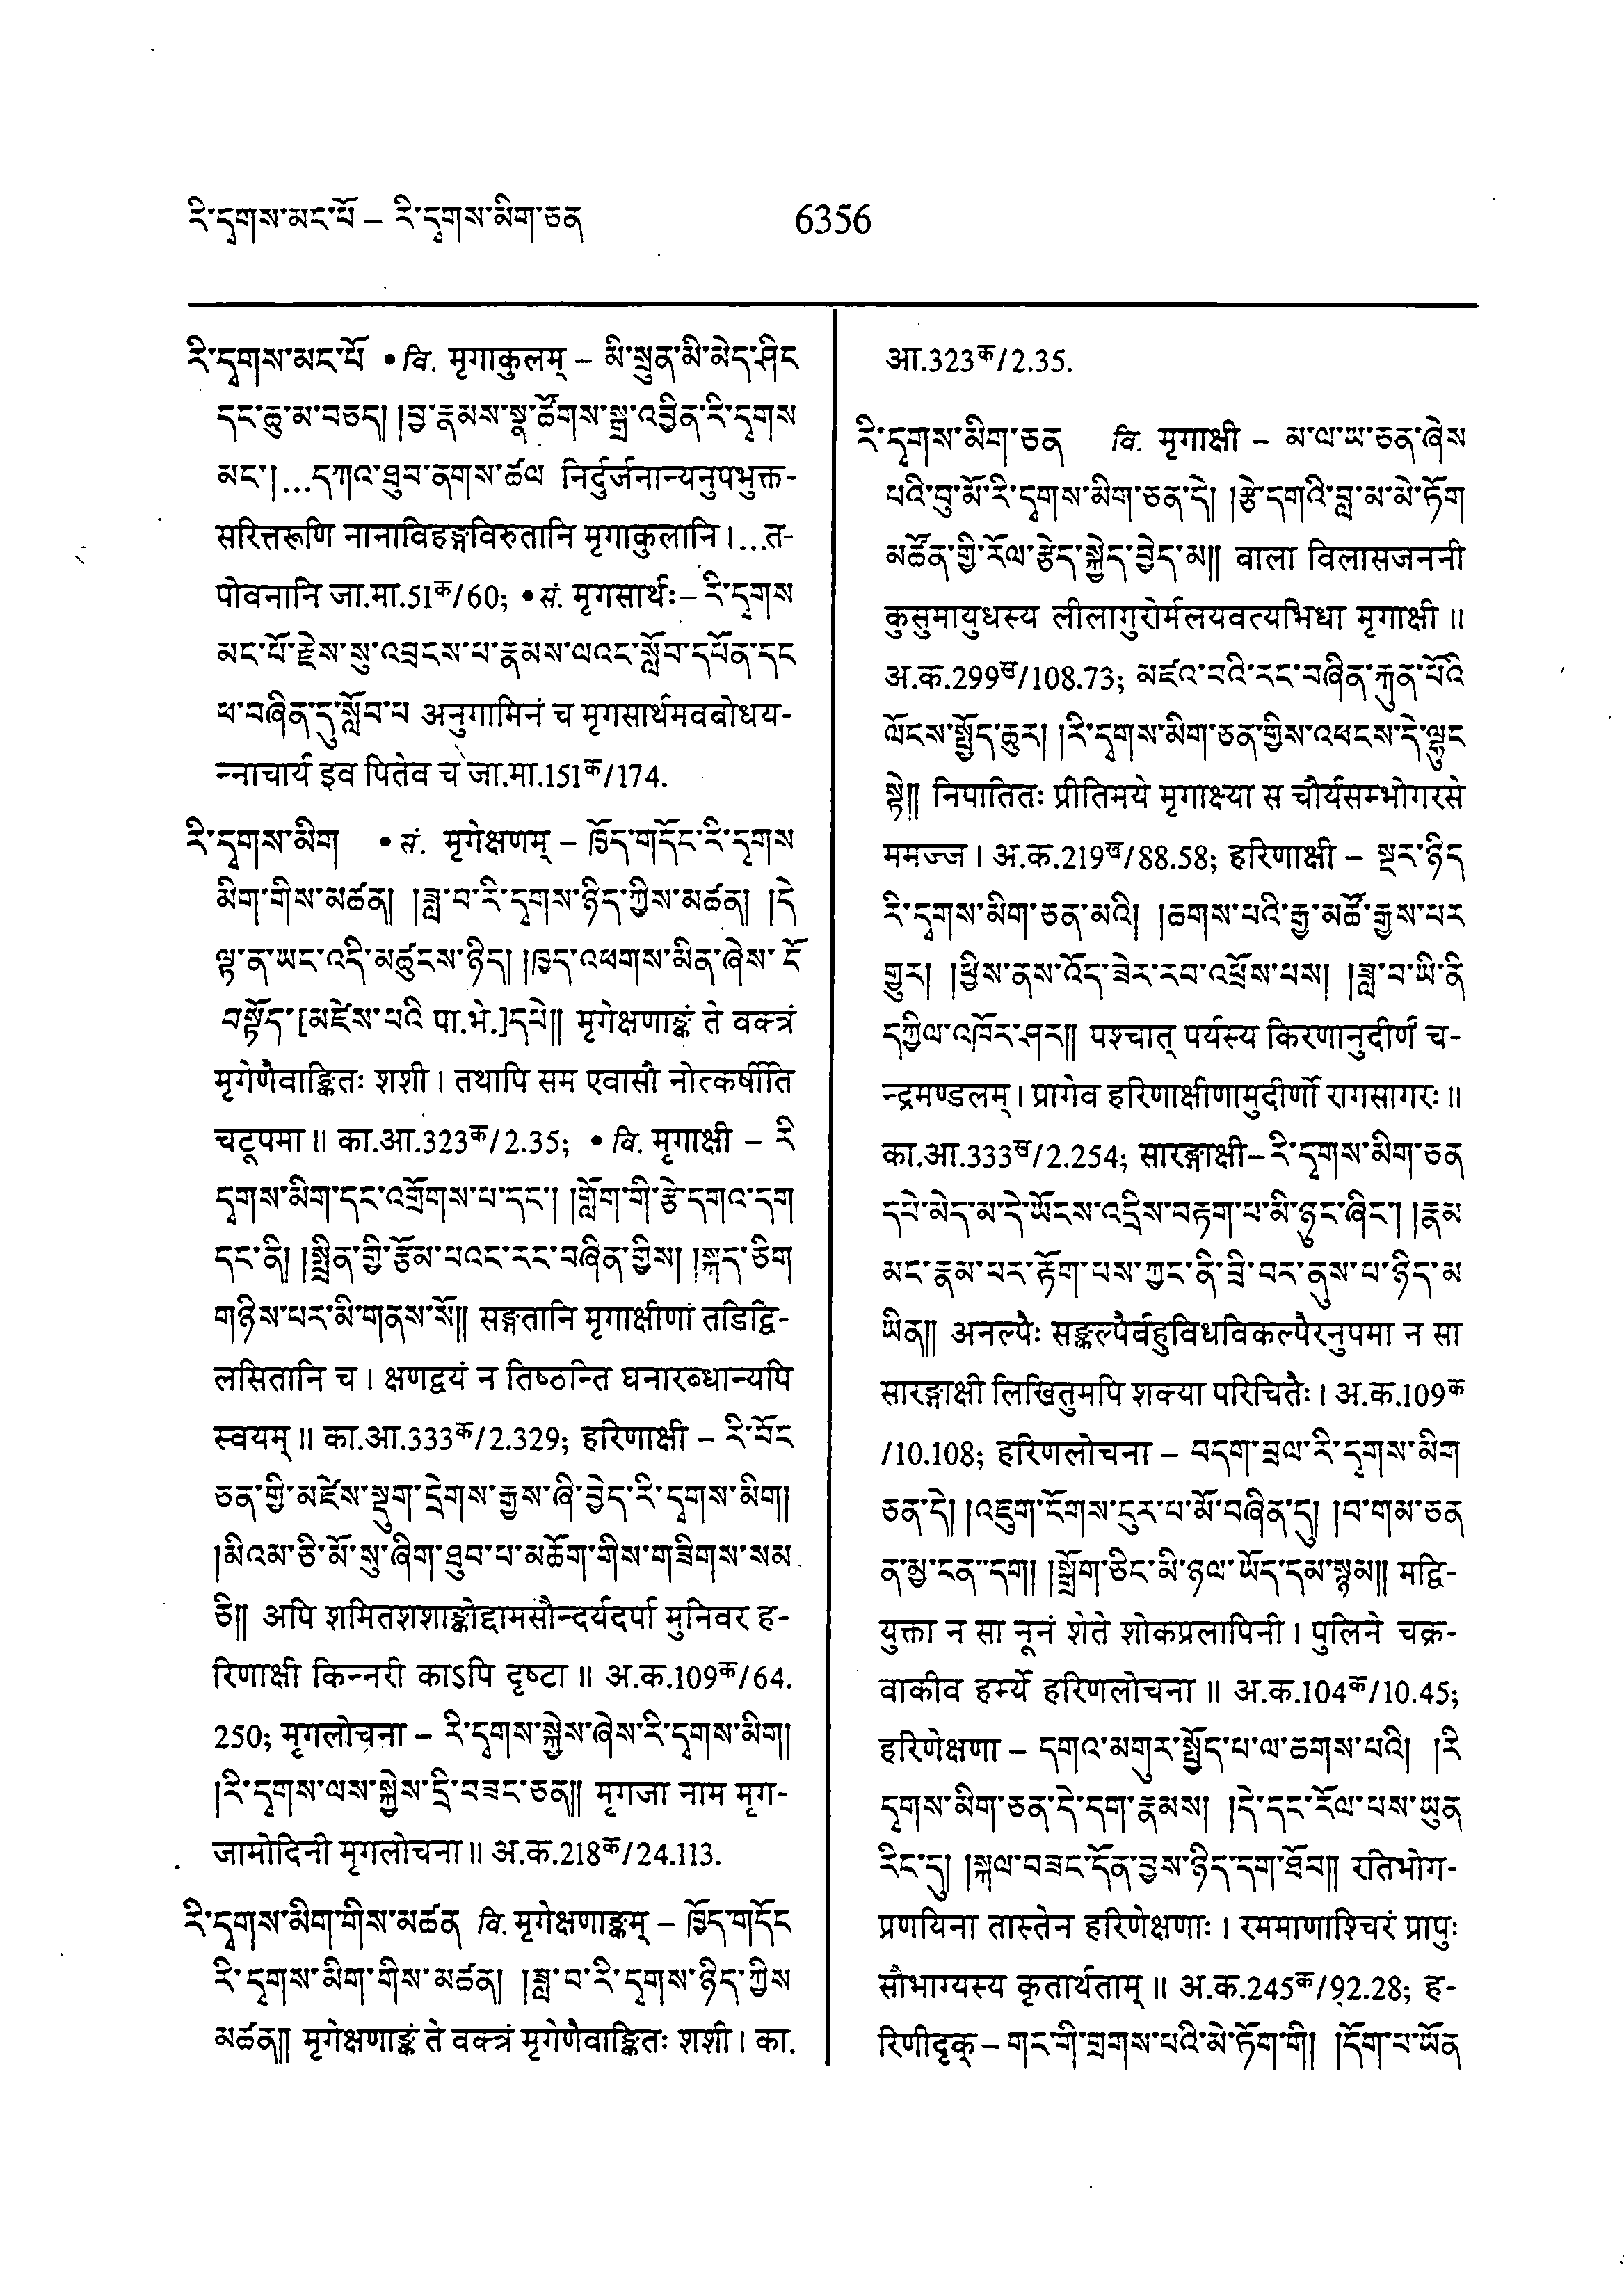 རི་དྭགས་མང་པོ – རི་དྭགས་མིག་ཅན 6356
རི་དྭགས་མང་པོ • वि. मृगाकुलम् – མི་སྲུན་མི་མེད་ཤིང
དང་ཆུ་མ་བཅད། །བྱ་རྣམས་སྣ་ཚོགས་སྒྲ་འབྱིན་རི་དྭགས
མང་། ...དཀའ་ཐུབ་ནགས་ཚལ निर्दुर्जनान्यनुपभुक्त-
सरित्तरूणि नानाविहङ्गविरुतानि मृगाकुलानि ।...त-
पोवनानि जा.मा.51क/60; • सं. मृगसार्थः– རི་དྭགས
མང་པོ་རྗེས་སུ་འབྲངས་པ་རྣམས་ལའང་སློབ་དཔོན་དང
ཕ་བཞིན་དུ་སློབ་པ अनुगामिनं च मृगसार्थमवबोधय-
न्नाचार्य इव पितेव च जा.मा.151क/174.
རི་དྭགས་མིག • सं. मृगेक्षणम् – ཁྱོད་གདོང་རི་དྭགས
མིག་གིས་མཚན། །ཟླ་བ་རི་དྭགས་ཉིད་ཀྱིས་མཚན། །དེ
ལྟ་ན་ཡང་འདི་མཚུངས་ཉིད། །ཁྱད་འཕགས་མིན་ཞེས་ ངོ
བསྟོད་[མཛེས་པའི पा.भे.]དཔེ༎ मृगेक्षणाङ्कं ते वक्त्रं
मृगेणैवाङ्कितः शशी । तथापि सम एवासौ नोत्कर्षीति
चटूपमा ॥ का.आ.323क/2.35; • वि. मृगाक्षी – རི
དྭགས་མིག་དང་འགྲོགས་པ་དང་། །གློག་གི་རྩེ་དགའ་དག
དང་ནི། །སྤྲིན་གྱི་རྩོམ་པའང་རང་བཞིན་གྱིས། །སྐད་ཅིག
གཉིས་པར་མི་གནས་སོ༎ सङ्गतानि मृगाक्षीणां तडिद्वि-
लसितानि च । क्षणद्वयं न तिष्ठन्ति घनारब्धान्यपि
स्वयम् ॥ का.आ.333क/2.329; हरिणाक्षी – རི་བོང
ཅན་གྱི་མཛེས་སྡུག་དྲེགས་རྒྱས་ཞི་བྱེད་རི་དྭགས་མིག།
།མིའམ་ཅི་མོ་སུ་ཞིག་ཐུབ་པ་མཆོག་གིས་གཟིགས་སམ
ཅི༎ अपि शमितशशाङ्कोद्दामसौन्दर्यदर्पा मुनिवर ह-
रिणाक्षी किन्नरी काऽपि दृष्टा ॥ अ.क.109क/64.
250; मृगलोचना – རི་དྭགས་སྐྱེས་ཞེས་རི་དྭགས་མིག།
།རི་དྭགས་ལས་སྐྱེས་དྲི་བཟང་ཅན༎ मृगजा नाम मृग-
जामोदिनी मृगलोचना ॥ अ.क.218क/24.113.
རི་དྭགས་མིག་གིས་མཚན वि. मृगेक्षणाङ्कम् – ཁྱོད་གདོང
རི་དྭགས་མིག་གིས་མཚན། །ཟླ་བ་རི་དྭགས་ཉིད་ཀྱིས
མཚན༎ मृगेक्षणाङ्कं ते वक्त्रं मृगेणैवाङ्कितः शशी । का.
आ.323क/2.35.
རི་དྭགས་མིག་ཅན वि. मृगाक्षी – མ་ལ་ཡ་ཅན་ཞེས
པའི་བུ་མོ་རི་དྭགས་མིག་ཅན་དེ། །རྩེ་དགའི་བླ་མ་མེ་ཏོག
མཚོན་གྱི་རོལ་རྩེད་སྐྱེད་བྱེད་མ༎ बाला विलासजननी
कुसुमायुधस्य लीलागुरोर्मलयवत्यभिधा मृगाक्षी ॥
अ.क.299ख/108.73; མཛའ་བའི་རང་བཞིན་ཀུན་པོའི
ལོངས་སྤྱོད་ཆུར། །རི་དྭགས་མིག་ཅན་གྱིས་འཕངས་དེ་ལྷུང
སྟེ༎ निपातितः प्रीतिमये मृगाक्ष्या स चौर्यसम्भोगरसे
ममज्ज । अ.क.219ख/88.58; हरिणाक्षी – སྔར་ཉིད
རི་དྭགས་མིག་ཅན་མའི། །ཆགས་པའི་རྒྱ་མཚོ་རྒྱས་པར
གྱུར། །ཕྱིས་ནས་འོད་ཟེར་རབ་འཕྲོས་པས། །ཟླ་བ་ཡི་ནི
དཀྱིལ་འཁོར་ཤར༎ पश्चात् पर्यस्य किरणानुदीर्णं च-
न्द्रमण्डलम् । प्रागेव हरिणाक्षीणामुदीर्णो रागसागरः ॥
का.आ.333ख/2.254; सारङ्गाक्षी–རི་དྭགས་མིག་ཅན
དཔེ་མེད་མ་དེ་ཡོངས་འདྲིས་བརྟག་པ་མི་ཉུང་ཞིང་། །རྣམ
མང་རྣམ་པར་རྟོག་པས་ཀྱང་ནི་བྲི་བར་ནུས་པ་ཉིད་མ
ཡིན༎ अनल्पैः सङ्कल्पैर्बहुविधविकल्पैरनुपमा न सा
सारङ्गाक्षी लिखितुमपि शक्या परिचितैः । अ.क.109क
/10.108; हरिणलोचना – བདག་བྲལ་རི་དྭགས་མིག
ཅན་དེ། །འཇུག་ངོགས་ངུར་པ་མོ་བཞིན་དུ། །བ་གམ་ཅན
ན་མྱ་ངན་དག། །སྒྲོག་ཅིང་མི་ཉལ་ཡོད་དམ་སྙམ༎ मद्वि-
युक्ता न सा नूनं शेते शोकप्रलापिनी । पुलिने चक्र-
वाकीव हर्म्ये हरिणलोचना ॥ अ.क.104क/10.45;
हरिणेक्षणा – དགའ་མགུར་སྤྱོད་པ་ལ་ཆགས་པའི། །རི
དྭགས་མིག་ཅན་དེ་དག་རྣམས། །དེ་དང་རོལ་པས་ཡུན
རིང་དུ། །སྐལ་བཟང་དོན་བྱས་ཉིད་དག་ཐོབ༎ रतिभोग-
प्रणयिना तास्तेन हरिणेक्षणाः । रममाणाश्चिरं प्रापुः
सौभाग्यस्य कृतार्थताम् ॥ अ.क.245क/92.28; ह-
रिणीदृक् – གང་གི་གྲགས་པའི་མེ་ཏོག་གི། །དོག་པ་ཡོན